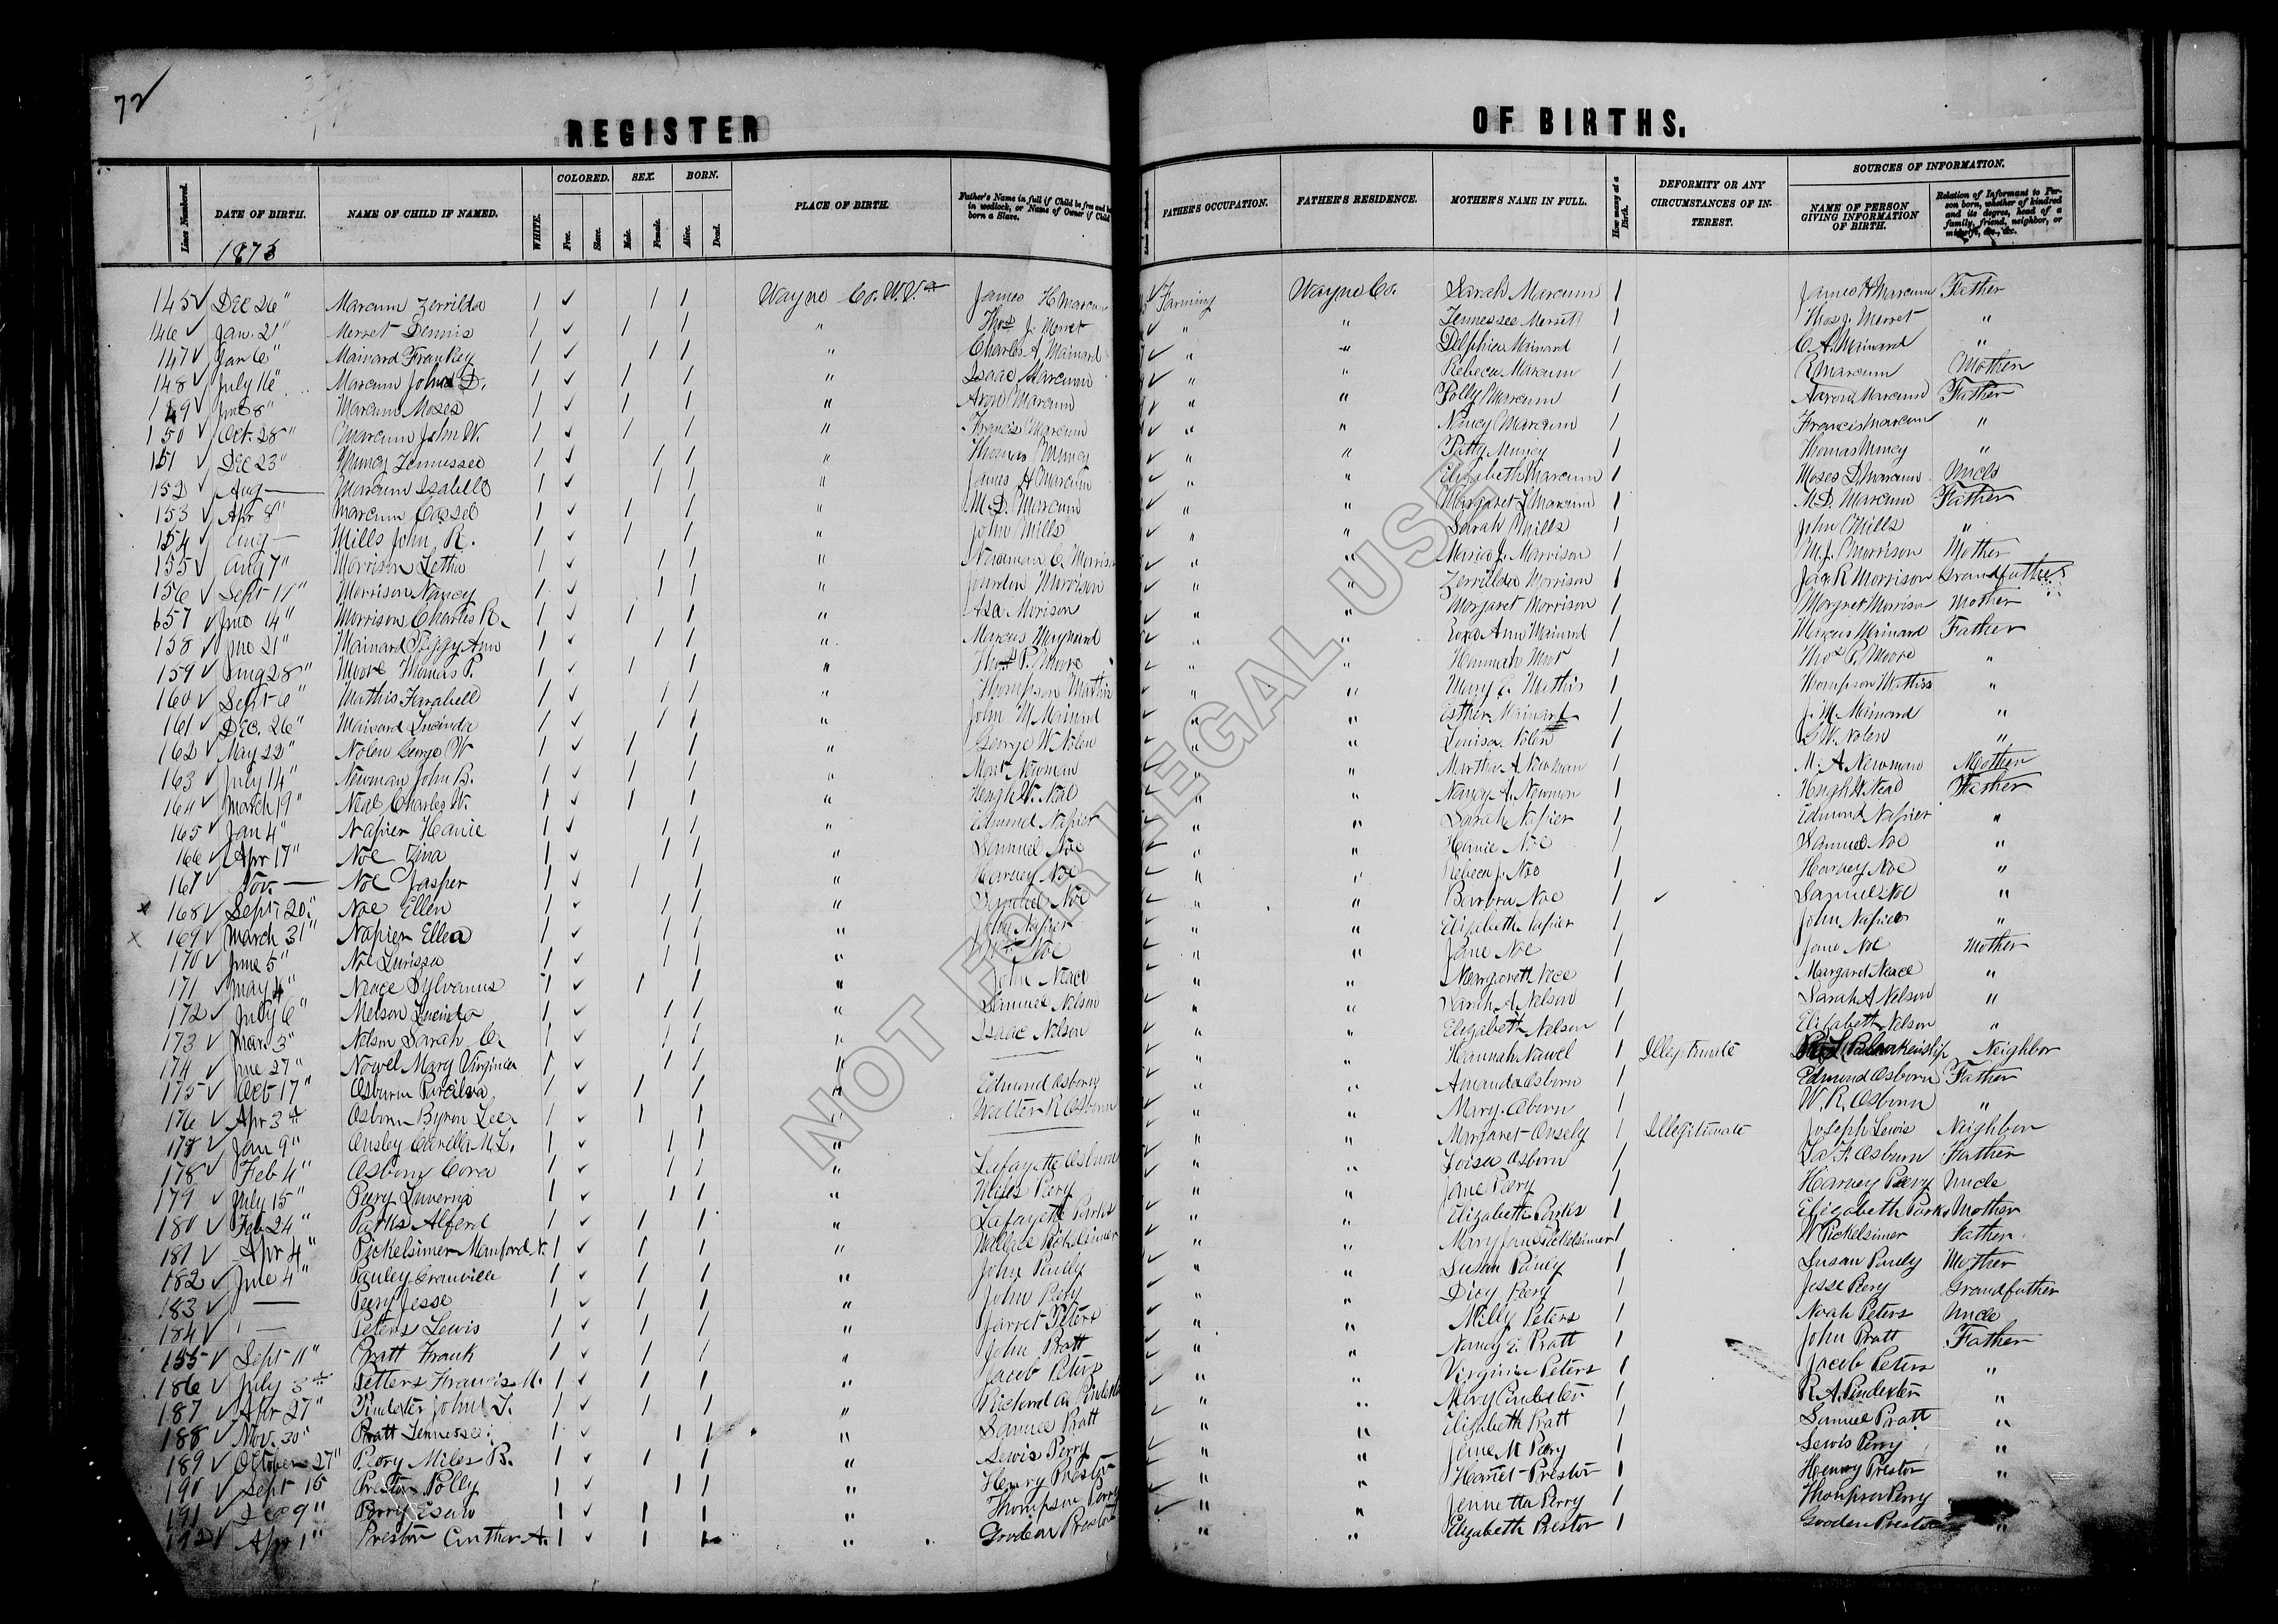 72
REGISTER OF BIRTHS.
Lines Numbered. DATE OF BIRTH. NAME OF CHILD IF NAMED. WHITE. COLORED. Free. Slave. SEX. Male. Female. BORN. Alive. Dead. PLACE OF BIRTH. Father's Name in full if Child be free and born in wedlock, or Name of Owner if Child born a Slave. FATHER'S OCCUPATION. FATHER'S RESIDENCE. MOTHER'S NAME IN FULL. How many at a Birth. DEFORMITY OR ANY CIRCUMSTANCES OF INTEREST. SOURCES OF INFORMATION. NAME OF PERSON GIVING INFORMATION OF BIRTH. Relation of Informant to Person born, whether of kindred and its degree, head of a family, friend, neighbor, or midwife, &c., &c.
1875
145 ✓ Dec 26" Marcum Zerrilda 1 ✓ 1 1 Wayne Co. W.Va James H Marcum ✓ Farming Wayne Co. Sarah Marcum 1 James H Marcum Father
146 ✓ Jan. 21" Merret Dennis 1 ✓ 1 1 " Thos J. Merret ✓ " " Tennessee Merritt 1 Thos J. Merret "
147 ✓ Jan 6" Mainard Frankey 1 ✓ 1 1 " Charles A Mainard ✓ " " Delphia Mainard 1 C. A. Mainard "
148 ✓ July 16" Marcum John D. 1 ✓ 1 1 " Isaac Marcum ✓ " " Rebeca Marcum 1 R Marcum Mother
149 ✓ June 8" Marcum Moses 1 ✓ 1 1 " Aron Marcum ✓ " " Polly Marcum 1 Aaron Marcum Father
150 ✓ Oct. 28" Marcum John W. 1 ✓ 1 1 " Francis Marcum ✓ " " Nancy Marcum 1 Francis Marcum "
151 ✓ Dec 23" Muncy Tennessee 1 ✓ 1 1 " Thomas Muncy ✓ " " Patty Muncy 1 Thomas Muncy "
152 ✓ Aug — Marcum Isabelle 1 ✓ 1 1 " James H Marcum ✓ " " Elizabeth Marcum 1 Moses D. Marcum Uncle
153 ✓ Apr 8" Marcum Cassel 1 ✓ 1 1 " M. D. Marcum ✓ " " Margaret J Marcum 1 M. D. Marcum Father
154 ✓ Aug — Mills John R. 1 ✓ 1 1 " John Mills ✓ " " Sarah Mills 1 John Mills "
155 ✓ Aug 7" Morrison Letha 1 ✓ 1 1 " Newman C. Morrison ✓ " " Maria J. Morrison 1 M. J. Morrison Mother
156 ✓ Sept 11" Morrison Nancy 1 ✓ 1 1 " Jourden Morrison ✓ " " Zerrilda Morrison 1 Jas R Morrison Grandfather
157 ✓ June 14" Morrison Charles R. 1 ✓ 1 1 " Asa Morison ✓ " " Margaret Morrison 1 Margret Morrison Mother
158 ✓ June 21" Mainard Peggy Ann 1 ✓ 1 1 " Marcus Maynard ✓ " " Ann Mainard 1 Marcus Mainard Father
159 ✓ Aug 28" Moore Thomas P. 1 ✓ 1 1 " Thos P. Moore ✓ " " Hannah Mor 1 Thos P. Moore "
160 ✓ Sept 6" Mathis Farabell 1 ✓ 1 1 " Thompson Mathis ✓ " " Mary E. Mathis 1 Thompson Mathis "
161 ✓ Dec. 26" Mainard Lucinda 1 ✓ 1 1 " John M Mainard ✓ " " Esther Mainard 1 J. M. Mainard "
162 ✓ May 22" Nolen George W 1 ✓ 1 1 " George W. Nolen ✓ " " Louisa Nolen 1 G W. Nolen "
163 ✓ July 14" Newman John B. 1 ✓ 1 1 " Mont Newman ✓ " " Martha A Newman 1 M. A Newman Mother
164 ✓ March 19" Neal Charles W. 1 ✓ 1 1 " Hugh W. Neal ✓ " " Nancy A. Newman 1 Hugh W Neal Father
165 ✓ Jan 4" Napier Hanie 1 ✓ 1 1 " Edmund Napier ✓ " " Sarah Napier 1 Edmond Napier "
166 ✓ Apr 17" Noe Zina 1 ✓ 1 1 " Samuel Noe ✓ " " Hanie Noe 1 Samuel Noe "
167 ✓ Nov. — Noe Jasper 1 ✓ 1 1 " Harvey Noe ✓ " " Rebeca J. Noe 1 Harvey Noe "
x 168 ✓ Sept. 20" Noe Ellen 1 ✓ 1 1 " Samuel Noe ✓ " " Barbra Noe 1 ✓ Samuel Noe "
x 169 ✓ March 31" Napier Ellen 1 ✓ 1 1 " John Napier ✓ " " Elizabeth Napier 1 John Napier "
170 ✓ June 5" Noe Lurissa 1 ✓ 1 1 " Noe ✓ " " Jane Noe 1 Jane Noe Mother
171 ✓ May 4" Neace Sylvanus 1 ✓ 1 1 " John Neace ✓ " " Margarett Nece 1 Margaret Neace "
172 ✓ July 6" Nelson Lucinda 1 ✓ 1 1 " Samuel Nelson ✓ " " Sarah A. Nelson 1 Sarah A Nelson "
173 ✓ Mar. 3" Nelson Sarah C. 1 ✓ 1 1 " Isaac Nelson ✓ " " Elizabeth Nelson 1 Elizabeth Nelson "
174 ✓ June 27" Nowel Mary Virginia 1 ✓ 1 1 " — ✓ " " Hannah Nawel 1 Illegitimate Blankenship Neighbor
175 ✓ Oct 17" Osburn 1 ✓ 1 1 " Edmund Osborn ✓ " " Amanda Osborn 1 Edmond Osborn Father
176 ✓ Apr 3d Osborn Byron Lee 1 ✓ 1 1 " Walter R Osborn ✓ " " Mary Oborn 1 W. R. Osborn "
178 ✓ Jan 9" Onsley Carilla M. L. 1 ✓ 1 1 " — ✓ " " Margaret Onsely 1 Illegitimate Joseph Lewis Neighbor
178 ✓ Feb 4" Osborn Cora 1 ✓ 1 1 " Lafayette Osburn ✓ " " Loisa Osborn 1 La F. Osburn Father
179 ✓ July 15" Perry Luverna 1 ✓ 1 1 " Miles Pery ✓ " " Jane Pery 1 Harvey Pery Uncle
180 ✓ Feb 24" Parks Alferd 1 ✓ 1 1 " Lafayette Parks ✓ " " Elizabeth Parks 1 Elizabeth Parks Mother
181 ✓ Apr 4" Pickelsimer Manford V. 1 ✓ 1 1 " Wallace Pickelsimer ✓ " " Mary Jane Pickelsimer 1 W Pickelsimer Father
182 ✓ June 4" Pauley Granville 1 ✓ 1 1 " John Pauly ✓ " " Susan Pauly 1 Susan Pauly Mother
183 ✓ — Pery Jesse 1 ✓ 1 1 " John Pery ✓ " " Dicy Pery 1 Jesse Pery Grandfather
184 ✓ — Peters Lewis 1 ✓ 1 1 " Jarret Peters ✓ " " Milly Peters 1 Noah Peters Uncle
155 ✓ Sept 11" Pratt Frank 1 ✓ 1 1 " John Pratt ✓ " " Nancy E. Pratt 1 John Pratt Father
186 ✓ July 3d Petters Francis M. 1 ✓ 1 1 " Jacob Peters ✓ " " Virginia Peters 1 Jacob Peters "
187 ✓ Apr 27" Pindexter John T. 1 ✓ 1 1 " Richard A Pindexter ✓ " " Mary Pindexter 1 R. A. Pindexter "
188 ✓ Nov. 30" Pratt Tennessee 1 ✓ 1 1 " Samuel Pratt ✓ " " Elizabeth Pratt 1 Samuel Pratt "
189 ✓ October 27" Pery Miles B. 1 ✓ 1 1 " Lewis Perry ✓ " " Jane M Pery 1 Lewis Perry "
190 ✓ Sept 15 Preston Polly 1 ✓ 1 1 " Henry Preston ✓ " " Harriet Preston 1 Henry Preston "
191 ✓ Dec 9" Perry Esaw 1 ✓ 1 1 " Thompson Perry ✓ " " Jennetta Perry 1 Thompson Perry
192 ✓ Apr 1" Preston Cinther A. 1 ✓ 1 1 " Gooden Preston " " Elizabeth Preston 1 Gooden Preston "
NOT FOR LEGAL USE